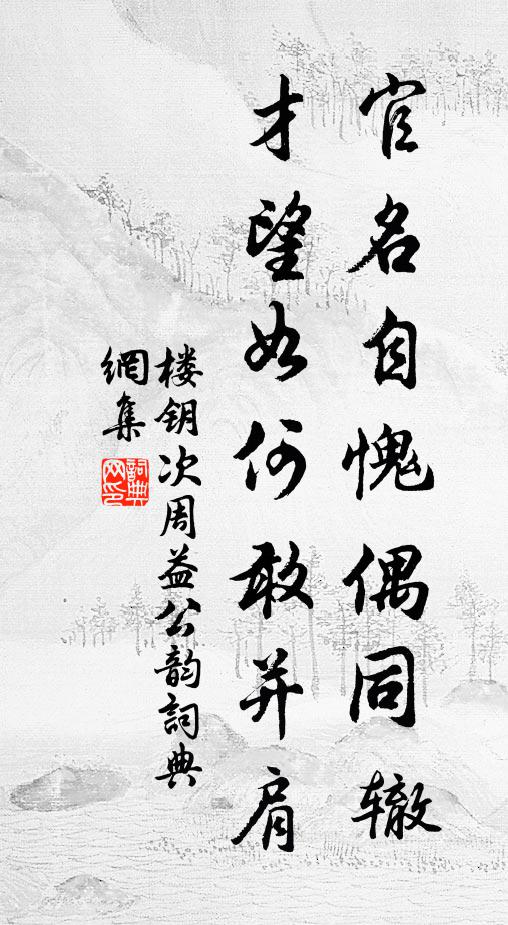 官名自愧偶同辙
才望如何敢并肩
楼钥次周益公韵詞典
網集
詞典
网印